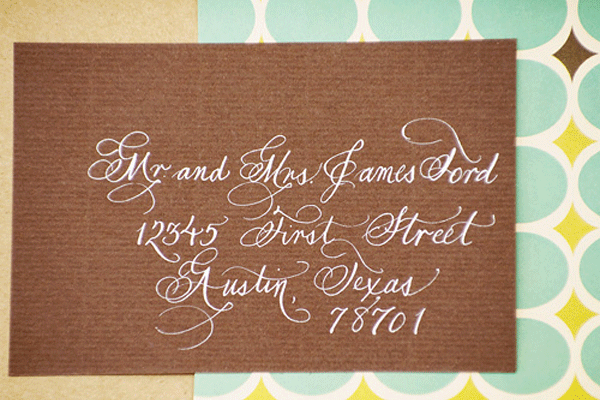 Mr. and Mrs. James Ford
12345 First Street
Austin, Texas
78701